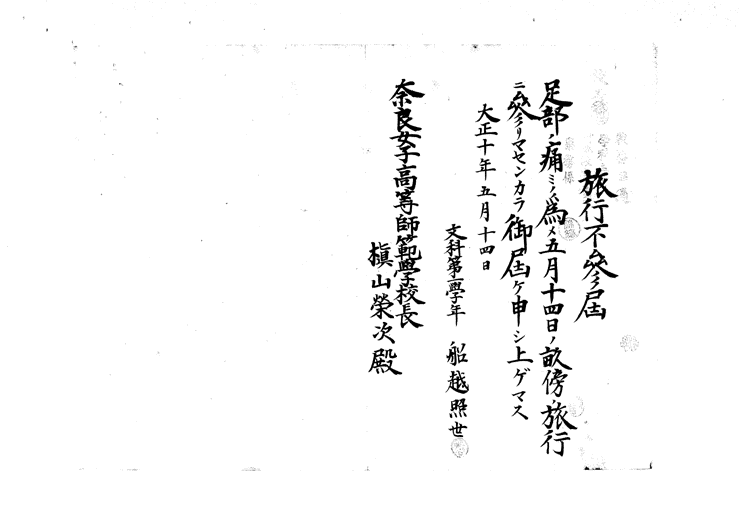 旅行不參屆
足部ノ痛ミノ爲メ五月十四日ノ畝傍ノ旅行
ニ參リマセンカラ御屆ケ申シ上ゲマス
大正十年五月十四日
文科第一學年 船越照世
奈良女子高等師範學校長
槇山榮次殿